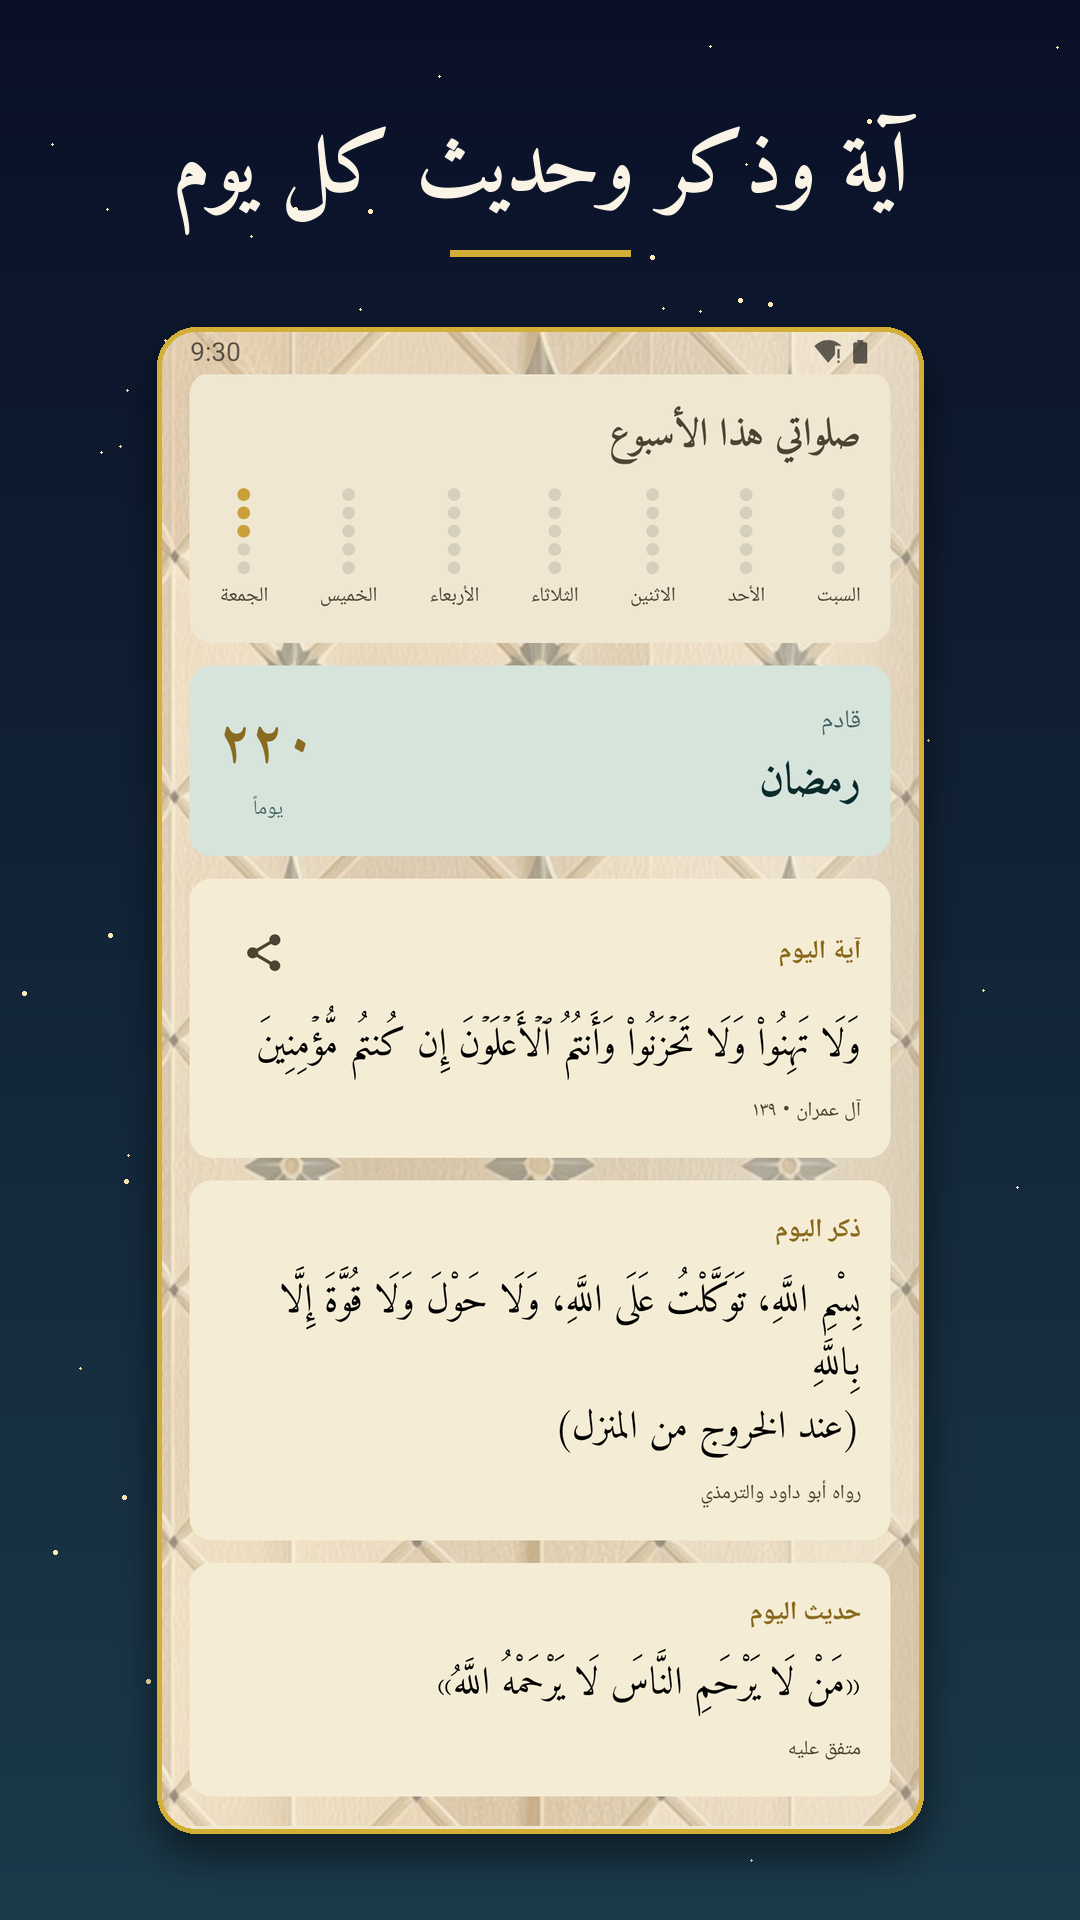 آية وذكر وحديث كل يوم
9:30
صلواتي هذا الأسبوع
السبت الأحد الاثنين الثلاثاء الأربعاء الخميس الجمعة
قادم
رمضان
٢٢٠
يوماً
آية اليوم
وَلَا تَهِنُواْ وَلَا تَحۡزَنُواْ وَأَنتُمُ ٱلۡأَعۡلَوۡنَ إِن كُنتُم مُّؤۡمِنِينَ
آل عمران • ١٣٩
ذكر اليوم
بِسْمِ اللَّهِ، تَوَكَّلْتُ عَلَى اللَّهِ، وَلَا حَوْلَ وَلَا قُوَّةَ إِلَّا
بِاللَّهِ
(عند الخروج من المنزل)
رواه أبو داود والترمذي
حديث اليوم
«مَنْ لَا يَرْحَمِ النَّاسَ لَا يَرْحَمْهُ اللَّهُ»
متفق عليه